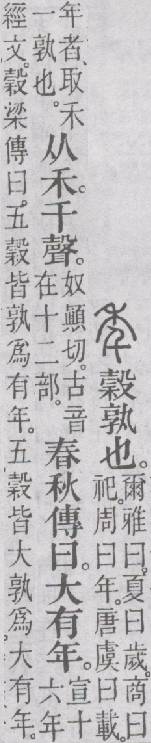 秊穀孰也。爾雅曰。夏曰歲。商曰祀。周曰年。唐虞曰載。
年者、取禾一孰也。从禾。千聲。奴顚切。古音在十二部。春秋傳曰。大有年。宣十六年
經文。穀梁傳曰。五穀皆孰爲有年。五穀皆大孰爲。大有年。